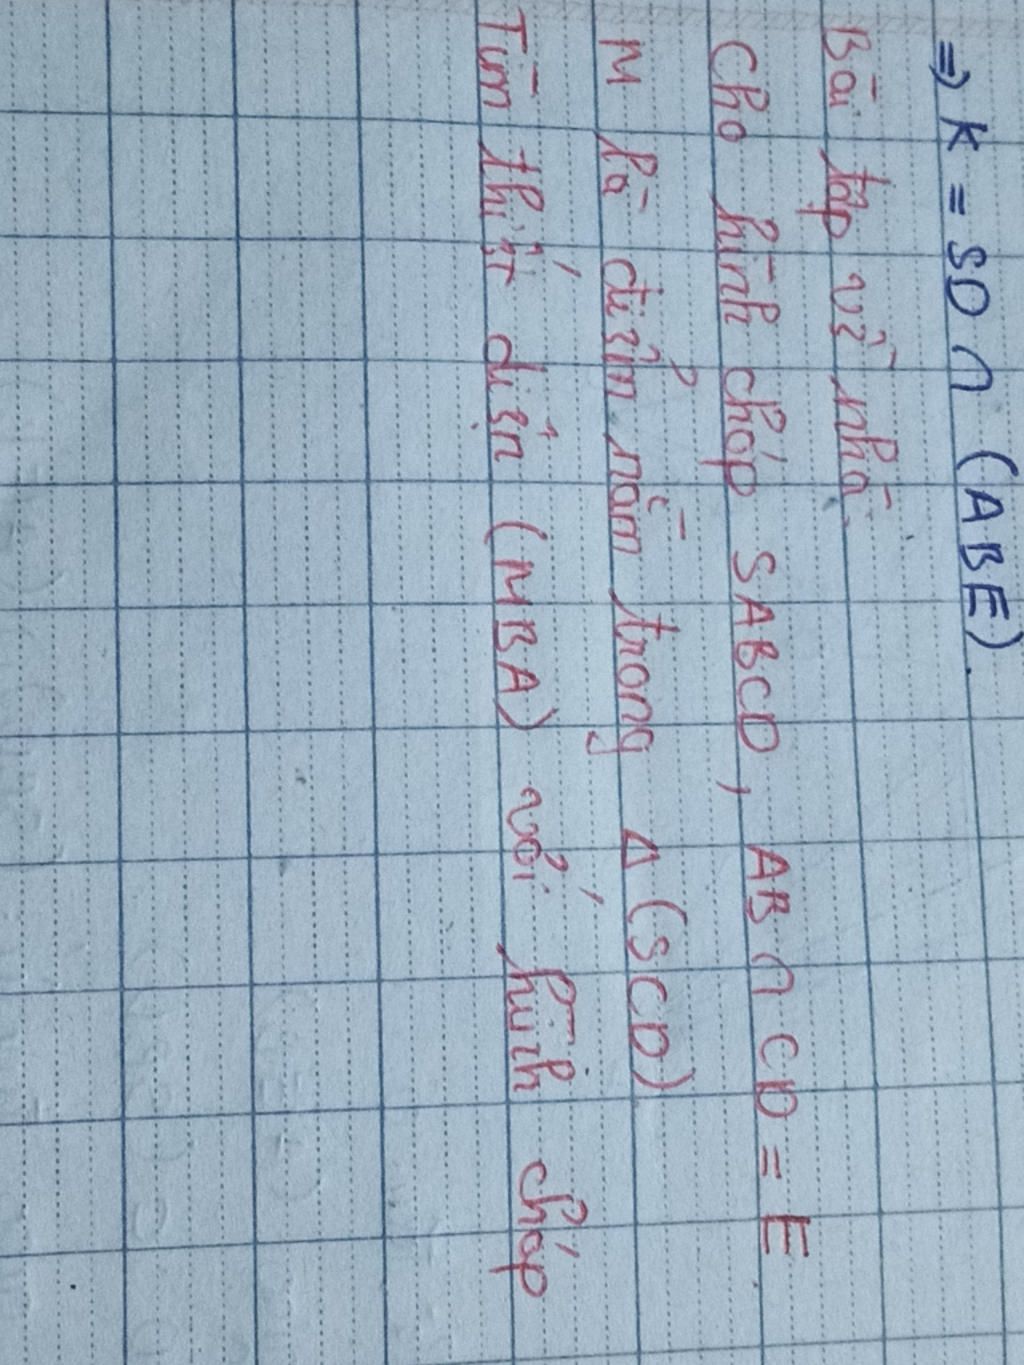 => K = SD ∩ (ABE).
Bài tập về nhà
Cho hình chóp SABCD, AB ∩ CD = E
M là điểm nằm trong Δ (SCD)
Tìm thiết diện (MBA) với hình chóp